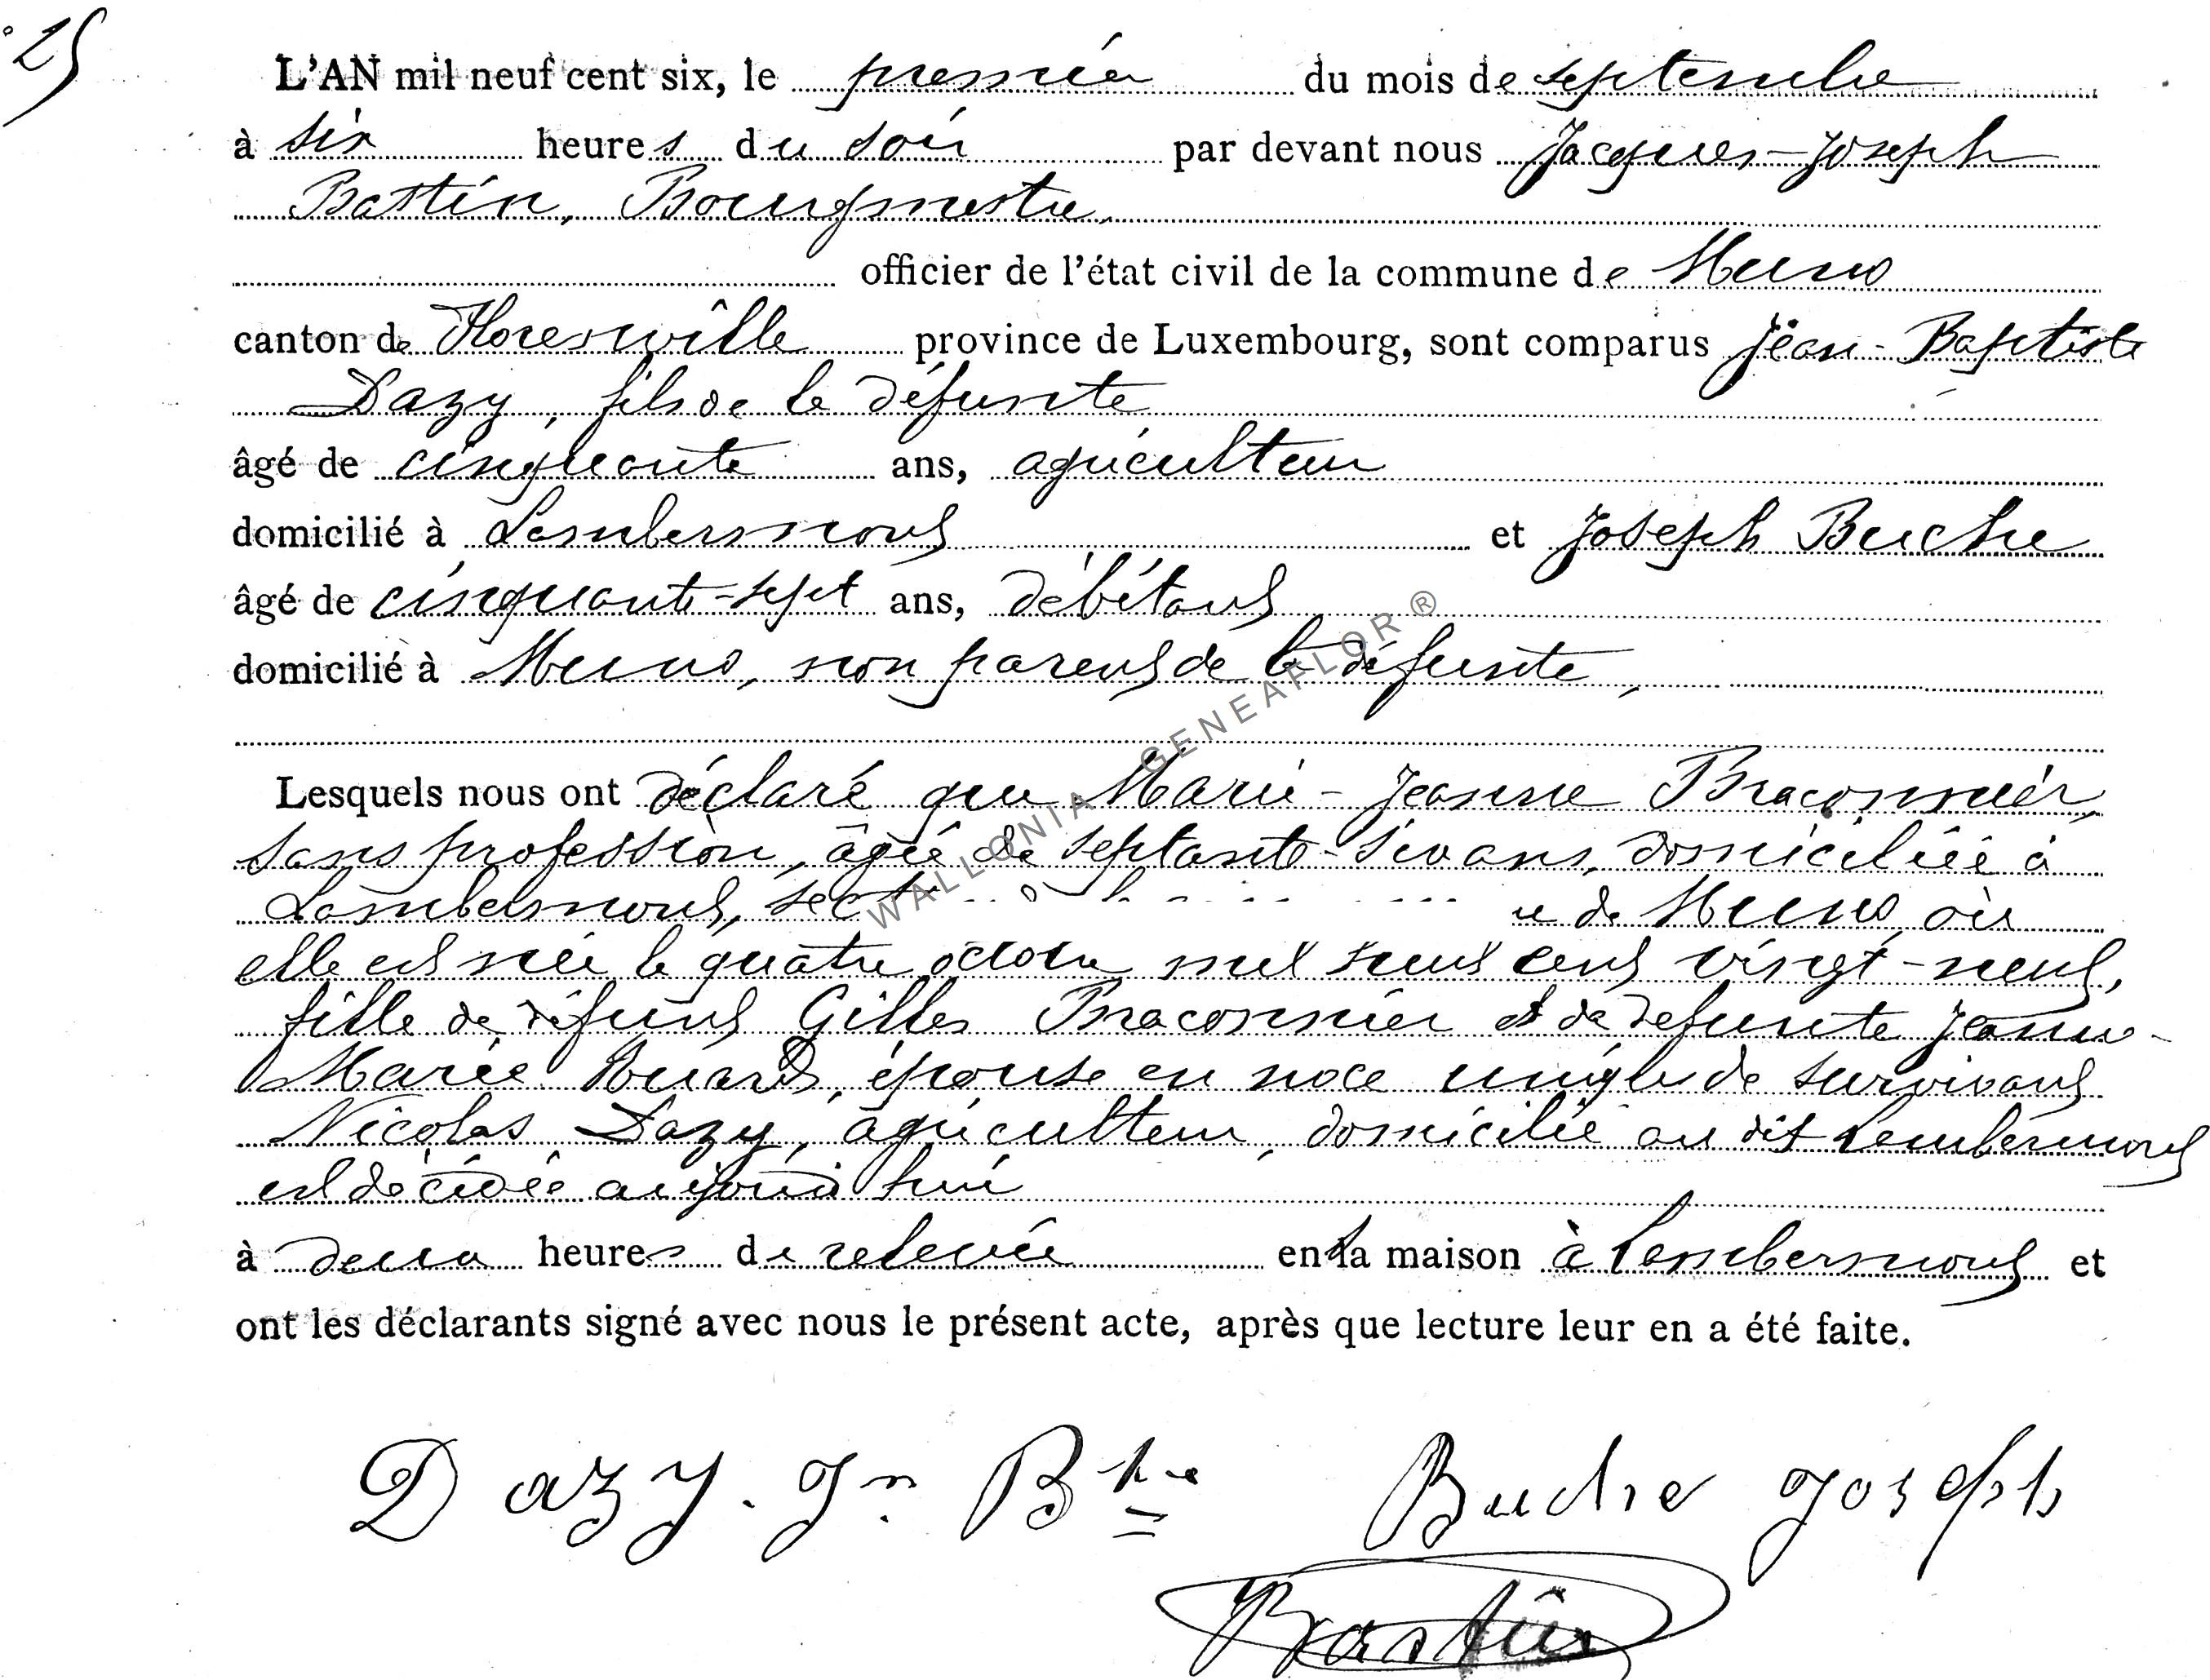 ° 25
L'AN mil neuf cent six, le premier du mois de septembre
à six heures du soir par devant nous Jacques-Joseph
Bastin, Bourgmestre,
officier de l'état civil de la commune de Muno
canton de Florenville province de Luxembourg, sont comparus Jean-Baptiste
Dazy, fils de la défunte
âgé de cinquante ans, agriculteur
domicilié à Lambermont et Joseph Buche
âgé de cinquante-sept ans, débitant
domicilié à Muno, non parent de la défunte,
Lesquels nous ont déclaré que Marie-Jeanne Braconnier,
sans profession, âgée de septante-six ans, domiciliée à
Lambermont, sect de Muno, où
elle est née le quatre octobre mil huit cent vingt-neuf,
fille de défunt Gilles Braconnier et de défunte Jeanne-
Marie Huard, épouse en noce unique de survivant
Nicolas Dazy, agriculteur, domicilié au dit Lambermont
est décédée aujourd'hui
à deux heures de relevée en la maison à Lambermont et
ont les déclarants signé avec nous le présent acte, après que lecture leur en a été faite.
Dazy. Jn Bte Buche Joseph
Bastin
WALLONIA - GENEAFLOR ®